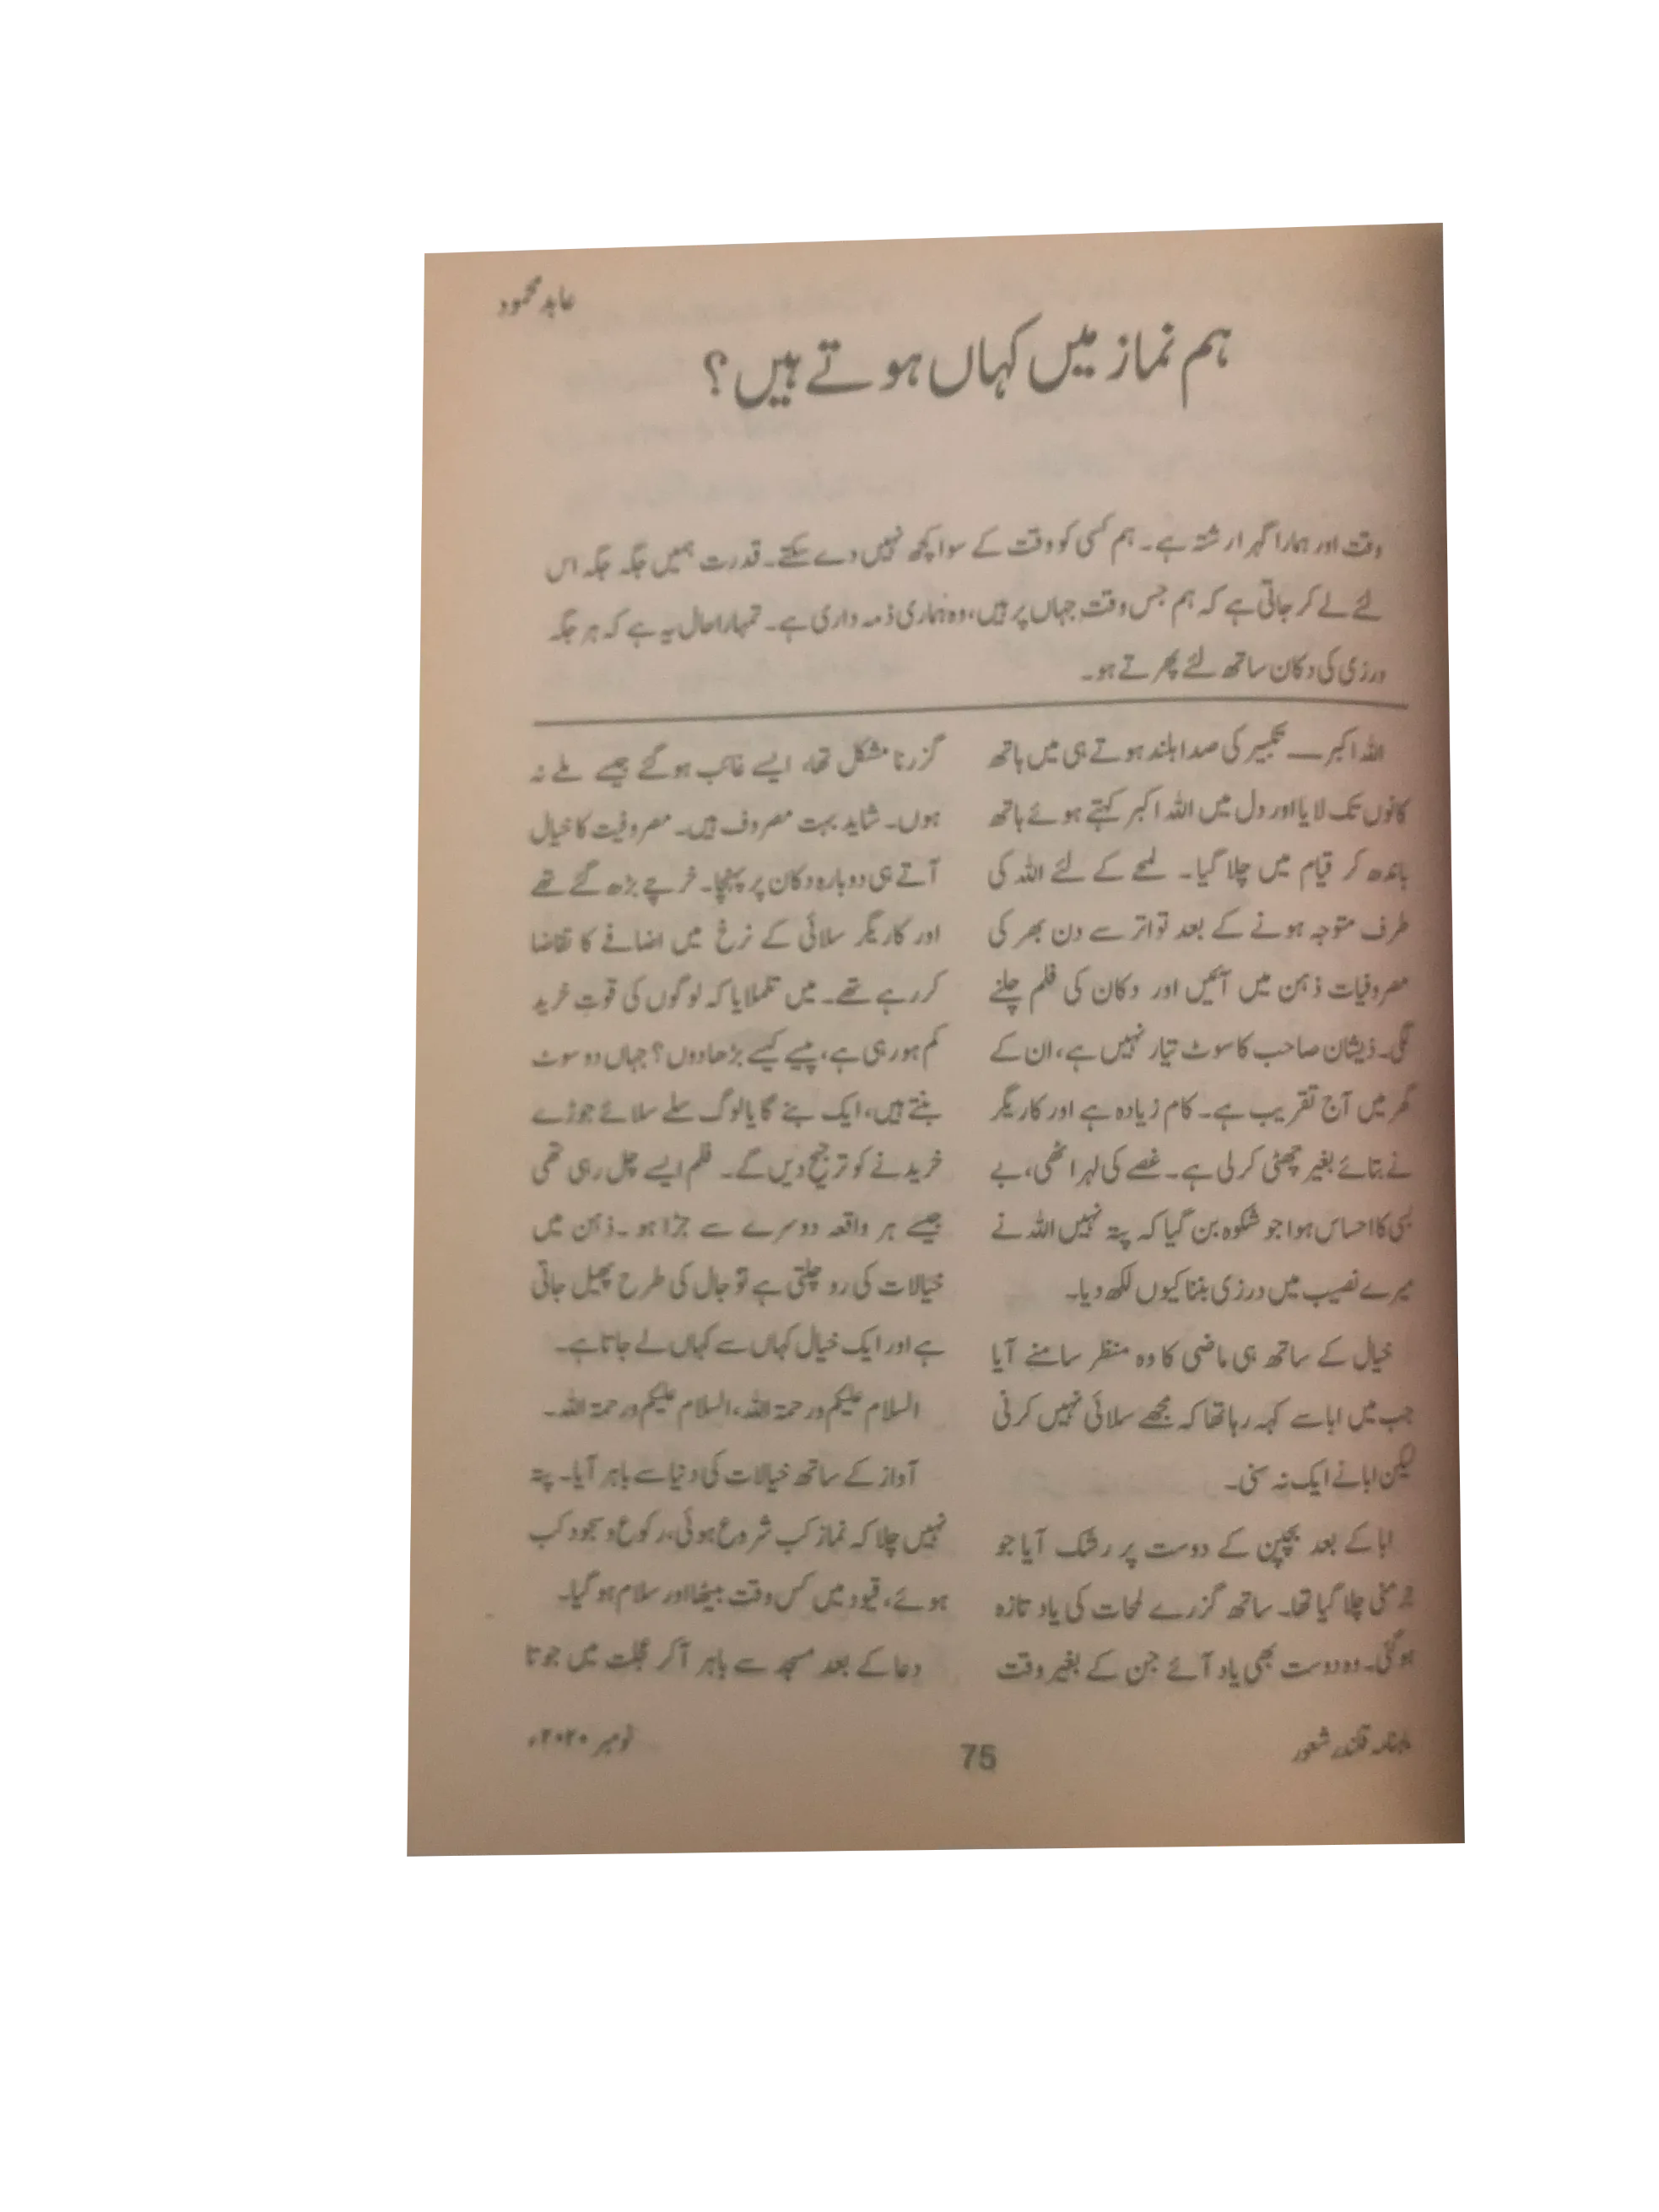 عابد محمود
ہم نماز میں کہاں ہوتے ہیں؟
وقت اور ہمارا گہرا رشتہ ہے۔ ہم کسی کو وقت کے سوا کچھ نہیں دے سکتے۔ قدرت ہمیں جگہ جگہ اس
لئے لے کر جاتی ہے کہ ہم جس وقت جہاں پر ہیں، وہ ہماری ذمہ داری ہے۔ تمہارا حال یہ ہے کہ ہر جگہ
درزی کی دکان ساتھ لئے پھرتے ہو۔
اللہ اکبر — تکبیر کی صدا بلند ہوتے ہی میں ہاتھ
کانوں تک لایا اور دل میں اللہ اکبر کہتے ہوئے ہاتھ
باندھ کر قیام میں چلا گیا۔ لمحے کے لئے اللہ کی
طرف متوجہ ہونے کے بعد تواتر سے دن بھر کی
مصروفیات ذہن میں آئیں اور دکان کی فلم چلنے
لگی۔ ذیشان صاحب کا سوٹ تیار نہیں ہے، ان کے
گھر میں آج تقریب ہے۔ کام زیادہ ہے اور کاریگر
نے بتائے بغیر چھٹی کر لی ہے۔ غصے کی لہر اٹھی، بے
بسی کا احساس ہوا جو شکوہ بن گیا کہ پتہ نہیں اللہ نے
میرے نصیب میں درزی بننا کیوں لکھ دیا۔
خیال کے ساتھ ہی ماضی کا وہ منظر سامنے آیا
جب میں ابا سے کہہ رہا تھا کہ مجھے سلائی نہیں کرنی
لیکن ابا نے ایک نہ سنی۔
ابا کے بعد بچپن کے دوست پر رشک آیا جو
جرمنی چلا گیا تھا۔ ساتھ گزرے لمحات کی یاد تازہ
ہو گئی۔ وہ دوست بھی یاد آئے جن کے بغیر وقت
گزرنا مشکل تھا، ایسے غائب ہو گئے جیسے ملے نہ
ہوں۔ شاید بہت مصروف ہیں۔ مصروفیت کا خیال
آتے ہی دوبارہ دکان پر پہنچا۔ خرچے بڑھ گئے تھے
اور کاریگر سلائی کے نرخ میں اضافے کا تقاضا
کر رہے تھے۔ میں تلملایا کہ لوگوں کی قوتِ خرید
کم ہو رہی ہے، پیسے کیسے بڑھا دوں؟ جہاں دو سوٹ
بنتے ہیں، ایک بنے گا یا لوگ سلے سلائے جوڑے
خریدنے کو ترجیح دیں گے۔ فلم ایسے چل رہی تھی
جیسے ہر واقعہ دوسرے سے جڑا ہو۔ ذہن میں
خیالات کی رو چلتی ہے تو جال کی طرح پھیل جاتی
ہے اور ایک خیال کہاں سے کہاں لے جاتا ہے۔
السلام علیکم ورحمۃ اللہ، السلام علیکم ورحمۃ اللہ۔
آواز کے ساتھ خیالات کی دنیا سے باہر آیا۔ پتہ
نہیں چلا کہ نماز کب شروع ہوئی، رکوع و سجود کب
ہوئے، قیود میں کس وقت بیٹھا اور سلام ہو گیا۔
دعا کے بعد مسجد سے باہر آ کر عجلت میں جوتا
ماہنامہ قلندر شعور
75
نومبر ۲۰۲۰ء